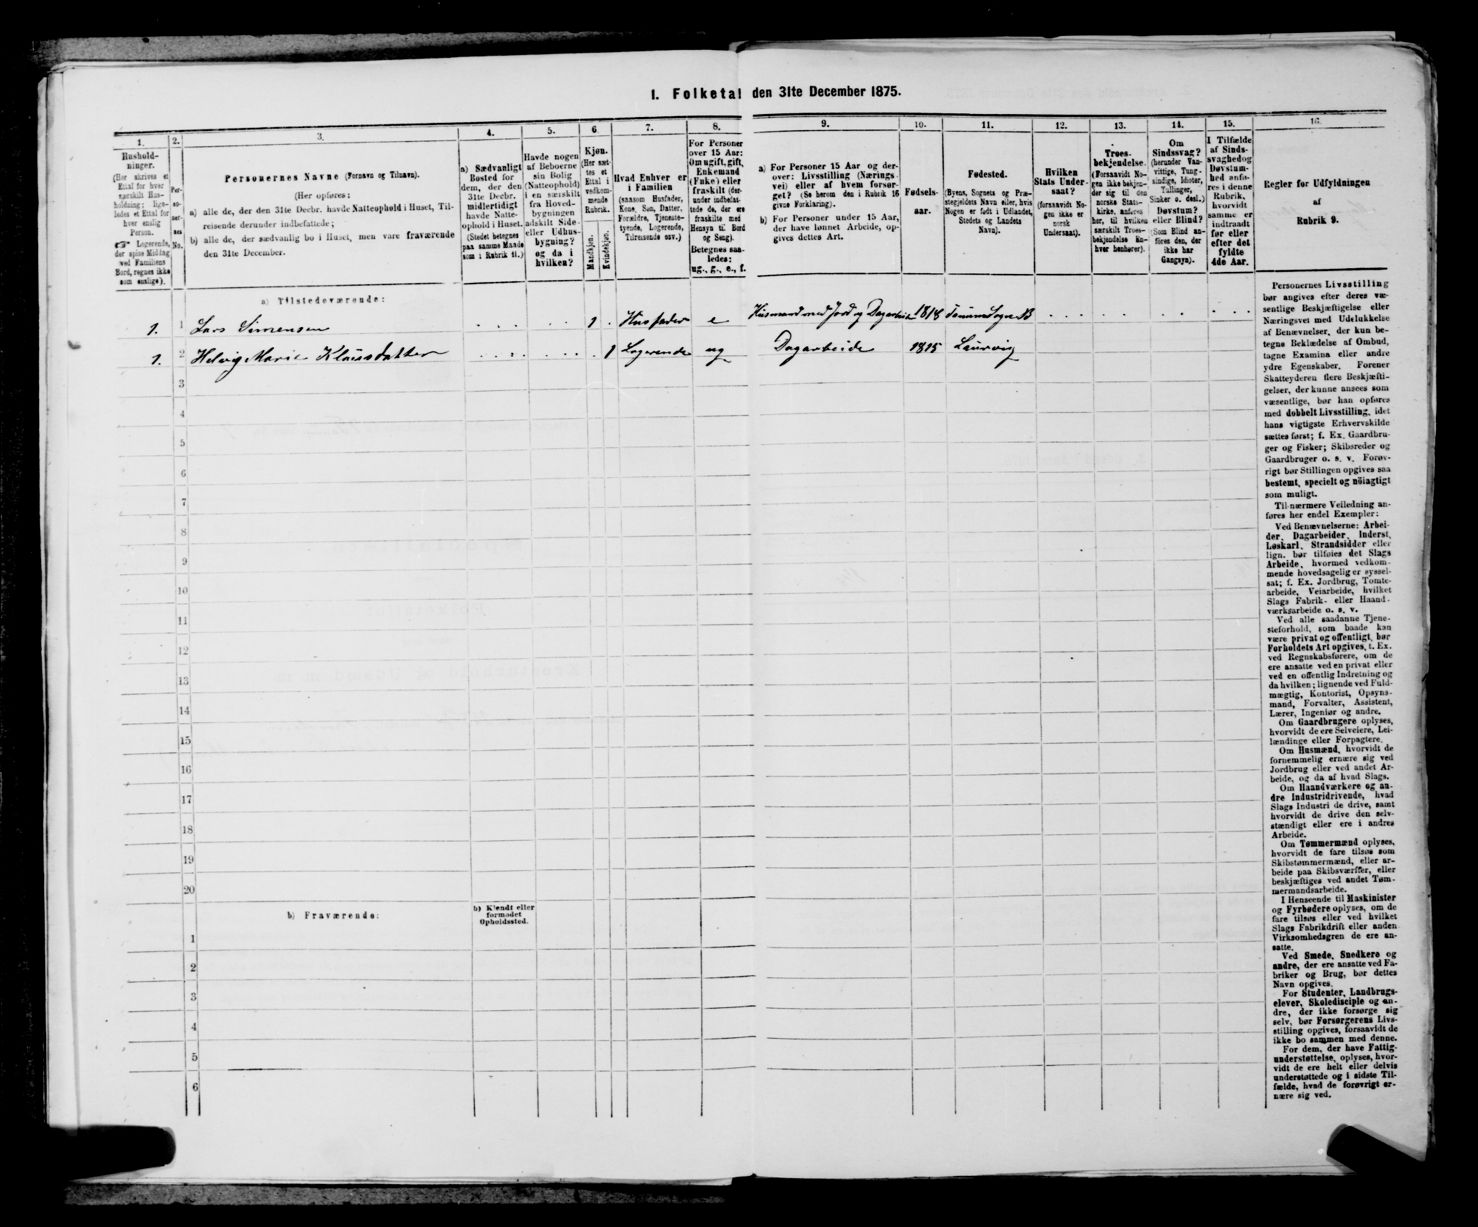 1. Folketal den 31te December 1875.
1.
2.
3.
4.
5.
6.
7.
8.
9.
10.
11.
12.
13.
14.
15.
16.
Hushold-
ninger.
(Her skrives et
Ettal for hver
særskilt Hus-
holdning; lige-
ledes et Ettal for
hver enslig
Person.
☞ Logerende,
der spise Middag
ved Familiens
Bord, regnes ikke
som enslige).
Per-
so-
ner-
nes
No.
Personernes Navne (Fornavn og Tilnavn).
(Her opføres:
a) alle de, der den 31te Decbr. havde Natteophold i Huset, Til-
reisende derunder indbefattede;
b) alle de, der sædvanlig bo i Huset, men vare fraværende
den 31te December.
a) Sædvanligt
Bosted for
dem, der den
31te Decbr.
midlertidigt
havde Natte-
ophold i Huset.
(Stedet betegnes
paa samme Maade
som i Rubrik 11.)
Havde nogen
af Beboerne
sin Bolig
(Natteophold)
i en særskilt
fra Hoved-
bygningen
adskilt Side-
eller Udhus-
bygning?
og da i
hvilken?
Kjøn.
(Her sæt-
tes et
Ettal i
vedkom-
mende
Rubrik.
Mandkjøn.
Kvindekjøn.
Hvad Enhver er
i Familien
(saasom Husfader,
Kone, Søn, Datter,
Forældre, Tjeneste-
tyende, Logerende,
Tilreisende osv.)
For Personer
over 15 Aar:
Om ugift, gift,
Enkemand
(Enke) eller
fraskilt (der-
under indbefat-
tede de, der ere
fraskilte med
Hensyn til Bord
og Seng).
Betegnes saa-
ledes:
ug., g., e., f.
a) For Personer 15 Aar og der-
over: Livsstilling (Nærings-
vei) eller af hvem forsør-
get? (Se herom den i Rubrik 16
givne Forklaring).
b) For Personer under 15 Aar,
der have lønnet Arbeide, op-
gives dettes Art.
Fødsels-
aar.
Fødested.
(Byens, Sognets og Præ-
stegjeldets Navn eller, hvis
Nogen er født i Udlandet,
Stedets og Landets
Navn).
Hvilken
Stats Under-
saat?
(forsaavidt No-
gen ikke er
norsk
Undersaat).
Troes-
bekjendelse.
(Forsaavidt No-
gen ikke bekjen-
der sig til den
norske Stats-
kirke, anføres
her, til hvilken
særskilt Troes-
bekjendelse En-
hver henhører).
Om
Sindssvag?
(herunder Van-
vittige, Tung-
sindige, Idioter,
Tullinger,
Sinker o. desl.)
Døvstum?
eller Blind?
(Som Blind an-
føres den, der
ikke har
Gangsyn).
I Tilfælde
af Sinds-
svaghed og
Døvstum-
hed anfø-
res i denne
Rubrik,
hvorvidt
samme er
indtraadt
før eller
efter det
fyldte
4de Aar.
Regler for Udfyldningen
af
Rubrik 9.
a) Tilstedeværende:
1. 1 Lars Simensen 1 Husfader e Husmand med Jord og Dagarbeide 1818
1. 2 Helvig Marie Klausdatter 1 Logerende ug Dagarbeide 1815 Laurvig
3
4
5
6
7
8
9
10
11
12
13
14
15
16
17
18
19
20
b) Fraværende:
b) Kjendt eller
formodet
Opholdssted.
1
2
3
4
5
6
Personernes Livsstilling
bør angives efter deres væ-
sentlige Beskjæftigelse eller
Næringsvei med Udelukkelse
af Benævnelser, der kun be-
tegne Beklædelse af Ombud,
tagne Examina eller andre
ydre Egenskaber. Forener
Skatteyderen flere Beskjæfti-
gelser, der kunne ansees som
væsentlige, bør han opføres
med dobbelt Livsstilling, idet
hans vigtigste Erhvervskilde
sættes først; f. Ex. Gaardbru-
ger og Fisker; Skibsreder og
Gaardbruger o. s. v. Forøv-
rigt bør Stillingen opgives saa
bestemt, specielt og nöiagtigt
som muligt.
Til nærmere Veiledning an-
føres her endel Exempler:
Ved Benævnelserne: Arbei-
der, Dagarbeider, Inderst,
Løskarl, Strandsidder eller
lign. bør tilføies det Slags
Arbeide, hvormed vedkom-
mende hovedsagelig er syssel-
sat; f. Ex. Jordbrug, Tomte-
arbeide, Veiarbeide, hvilket
Slags Fabrik- eller Haand-
værksarbeide o. s. v.
Ved alle saadanne Tjene-
steforhold, som baade kan
være privat og offentligt, bør
Forholdets Art opgives, f. Ex.
ved Regnskabsførere, om de
ere ansatte ved en privat eller
ved en offentlig Indretning og
da hvilken; lignende ved Fuld-
mægtig, Kontorist, Opsyns-
mand, Forvalter, Assistent,
Lærer, Ingeniør og andre.
Om Gaardbrugere oplyses,
hvorvidt de ere Selveiere, Lei-
lændinge eller Forpagtere.
Om Husmænd, hvorvidt de
fornemmelig ernære sig ved
Jordbrug eller ved andet Ar-
beide, og da af hvad Slags.
Om Haandværkere og an-
dre Industridrivende, hvad
Slags Industri de drive, samt
hvorvidt de drive den selv-
stændigt eller ere i andres
Arbeide.
Om Tømmermænd oplyses,
hvorvidt de fare tilsøs som
Skibstømmermænd, eller ar-
beide paa Skibsværfter, eller
beskjæftiges ved andet Tøm-
mermandsarbeide.
I Henseende til Maskinister
og Fyrbødere oplyses, om de
fare tilsøs eller ved hvilket
Slags Fabrikdrift eller anden
Virksomhedsgren de ere an-
satte.
Ved Smede, Snedkere og
andre, der ere ansatte ved Fa-
briker og Brug, bør dettes
Navn opgives.
For Studenter, Landbrugs-
elever, Skoledisciple og an-
dre, der ikke forsørge sig
selv, bør Forsørgerens Livs-
stilling opgives, forsaavidt de
ikke bo sammen med denne.
For dem, der have Fattig-
understøttelse, oplyses, hvor-
vidt de ere helt eller delvis
understøttede og i sidste Til-
fælde, hvad de forøvrigt er-
nære sig ved.